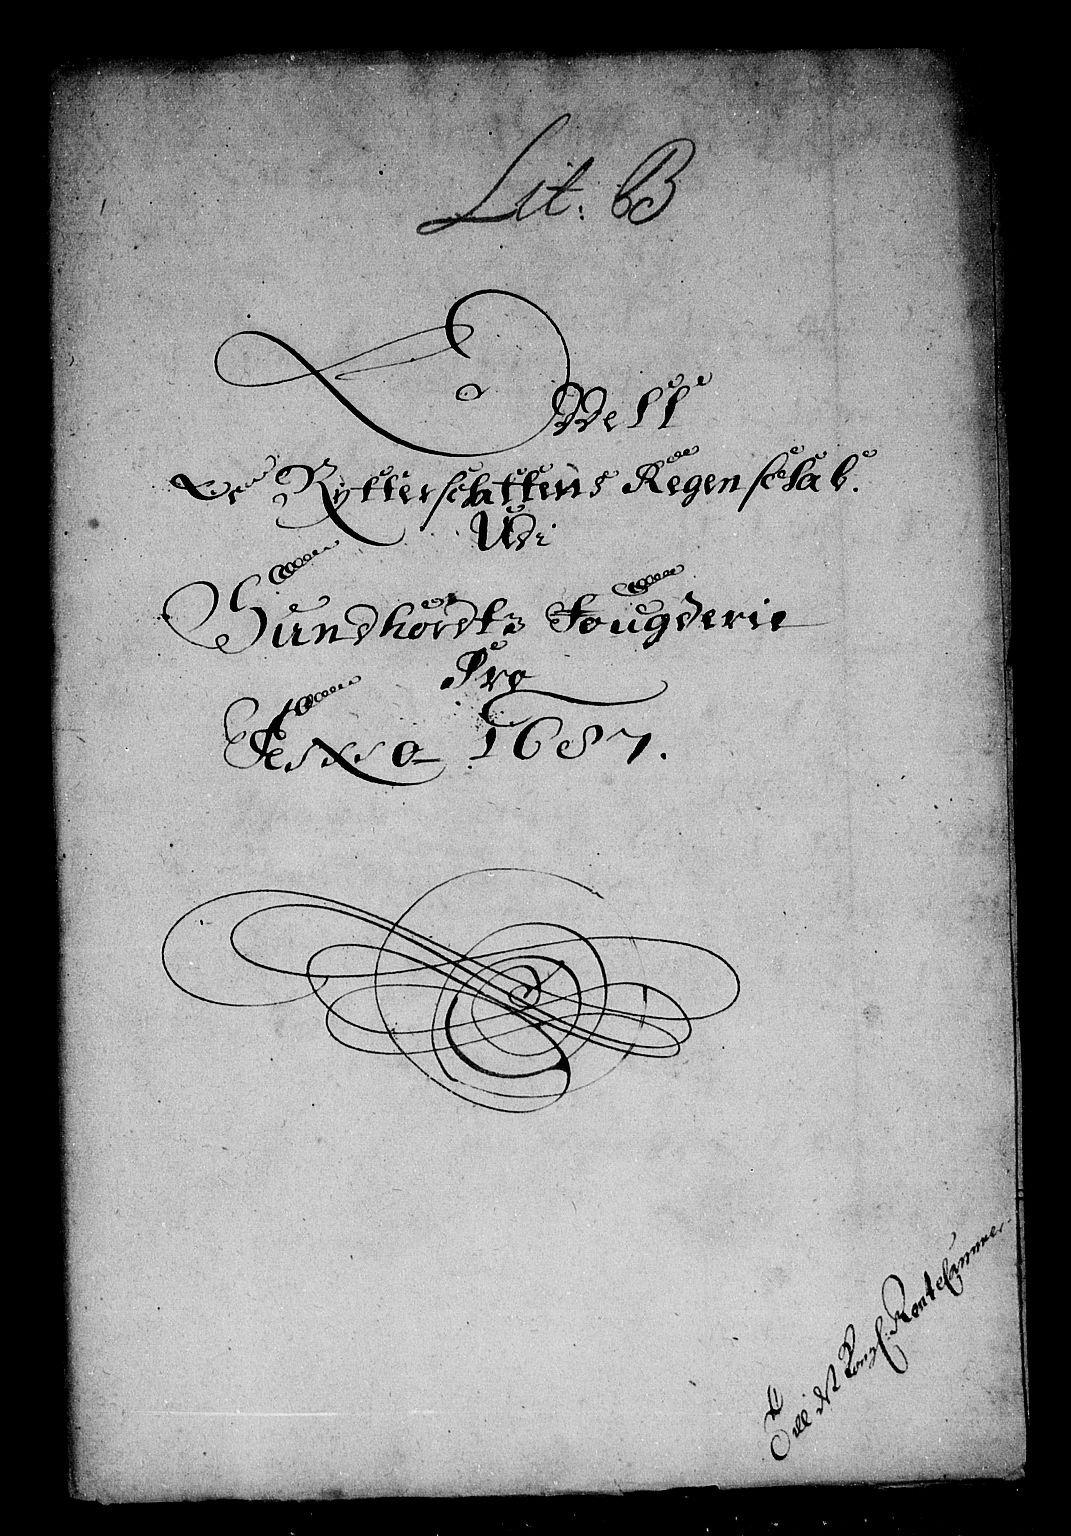 Lit: B
Rytterschattens Regenschab.
Udi
Sundhordtz Fougderie
Pro
1687.
Till det Kongl: Rentecammer.